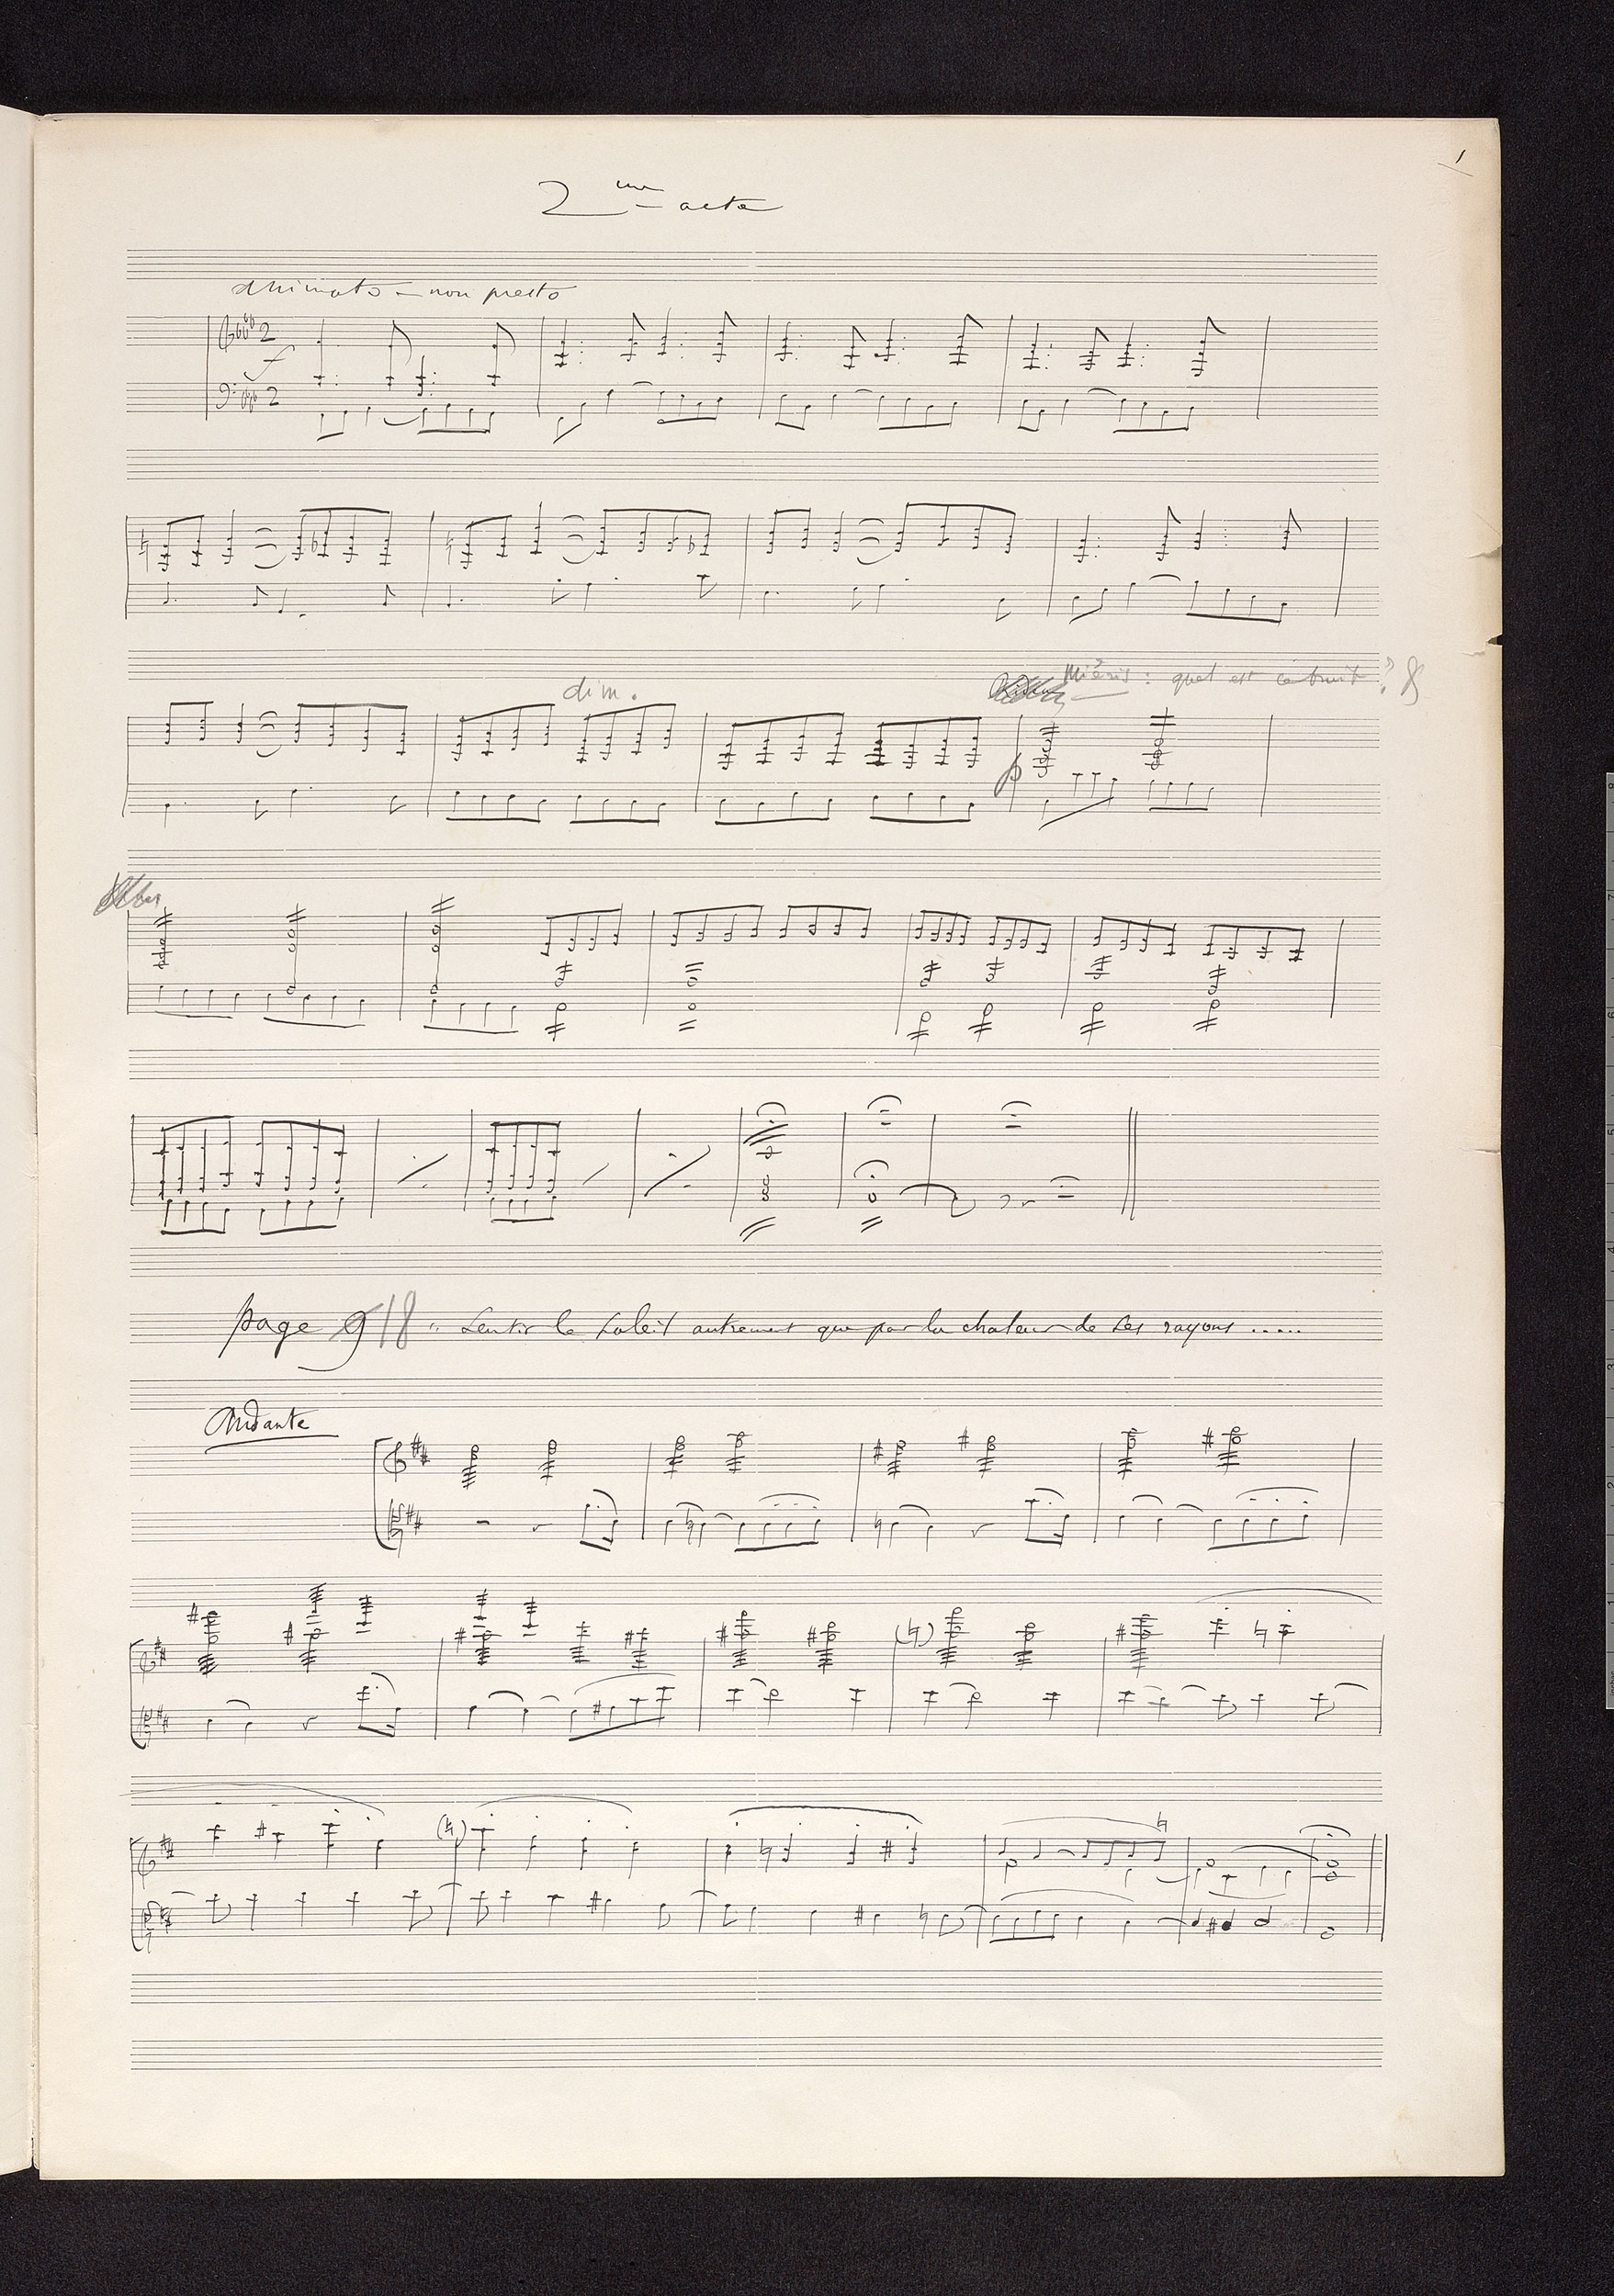 1
2me acte
Animato – non presto
2
f
2
dim.
Miéris : quel est ce bruit ?
p
page 18 " Sentir le Soleil autrement que par la chaleur de ses rayons .....
Andante